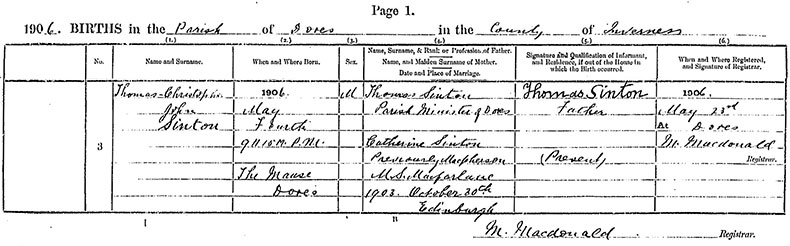 Page 1.
1906. BIRTHS in the Parish of Dores in the County of Inverness
(1.) (2.) (3.) (4.) (5.) (6.)
No.
Name and Surname.
When and Where Born.
Sex.
Name, Surname, & Rank or Profession of Father.
Name, and Maiden Surname of Mother.
Date and Place of Marriage.
Signature and Qualification of Informant,
and Residence, if out of the House in
which the Birth occurred.
When and Where Registered,
and Signature of Registrar.
3
Thomas Christopher
John
Sinton
1906
May
Fourth
9 H. 15 M. P.M.
The Manse
Dores
M
Thomas Sinton
Parish Minister of Dores
Catherine Sinton
Previously Macpherson
M.S. Macfarlane
1903. October 30th
Edinburgh
Thomas Sinton
Father
(Present)
1906.
May 23rd
At Dores
M. Macdonald
Registrar.
M. Macdonald Registrar.